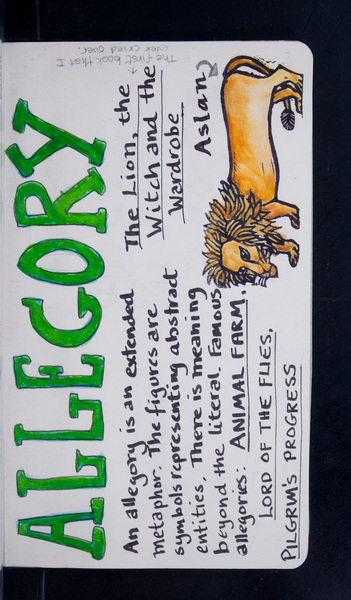 ALLEGORY
An allegory is an extended
metaphor. The figures are
symbols representing abstract
entities. There is meaning
beyond the literal. Famous
allegories: ANIMAL FARM,
LORD OF THE FLIES,
PILGRIM'S PROGRESS
The first book that I
ever cried over.
The Lion, the
Witch and the
Wardrobe
Aslan